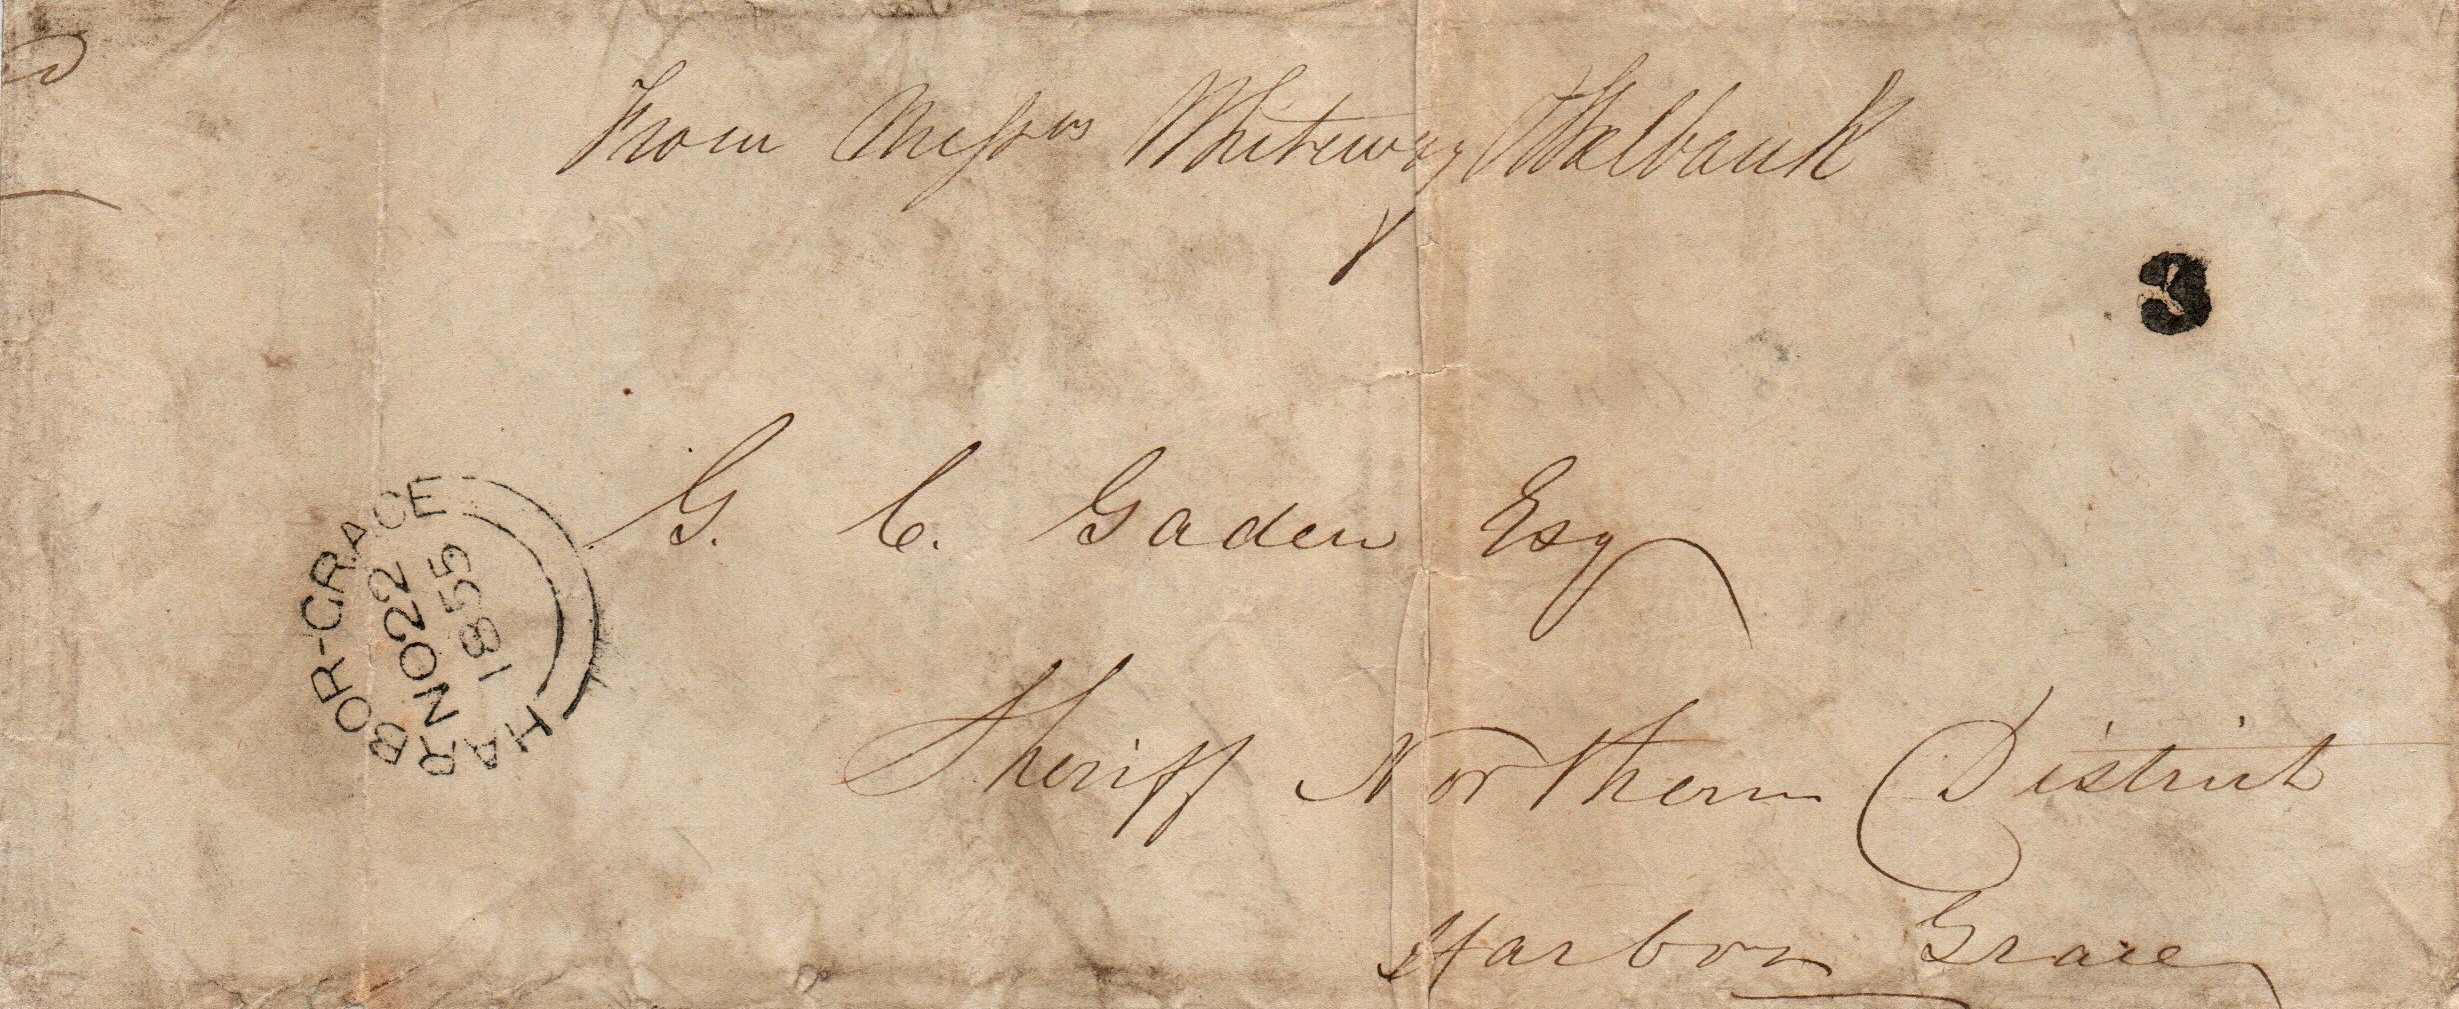 From Messrs Whiteway
3
G. C. Gaden Esq
Sheriff Northern District
Harbor Grace
HARBOR-GRACE
NO 22
1855